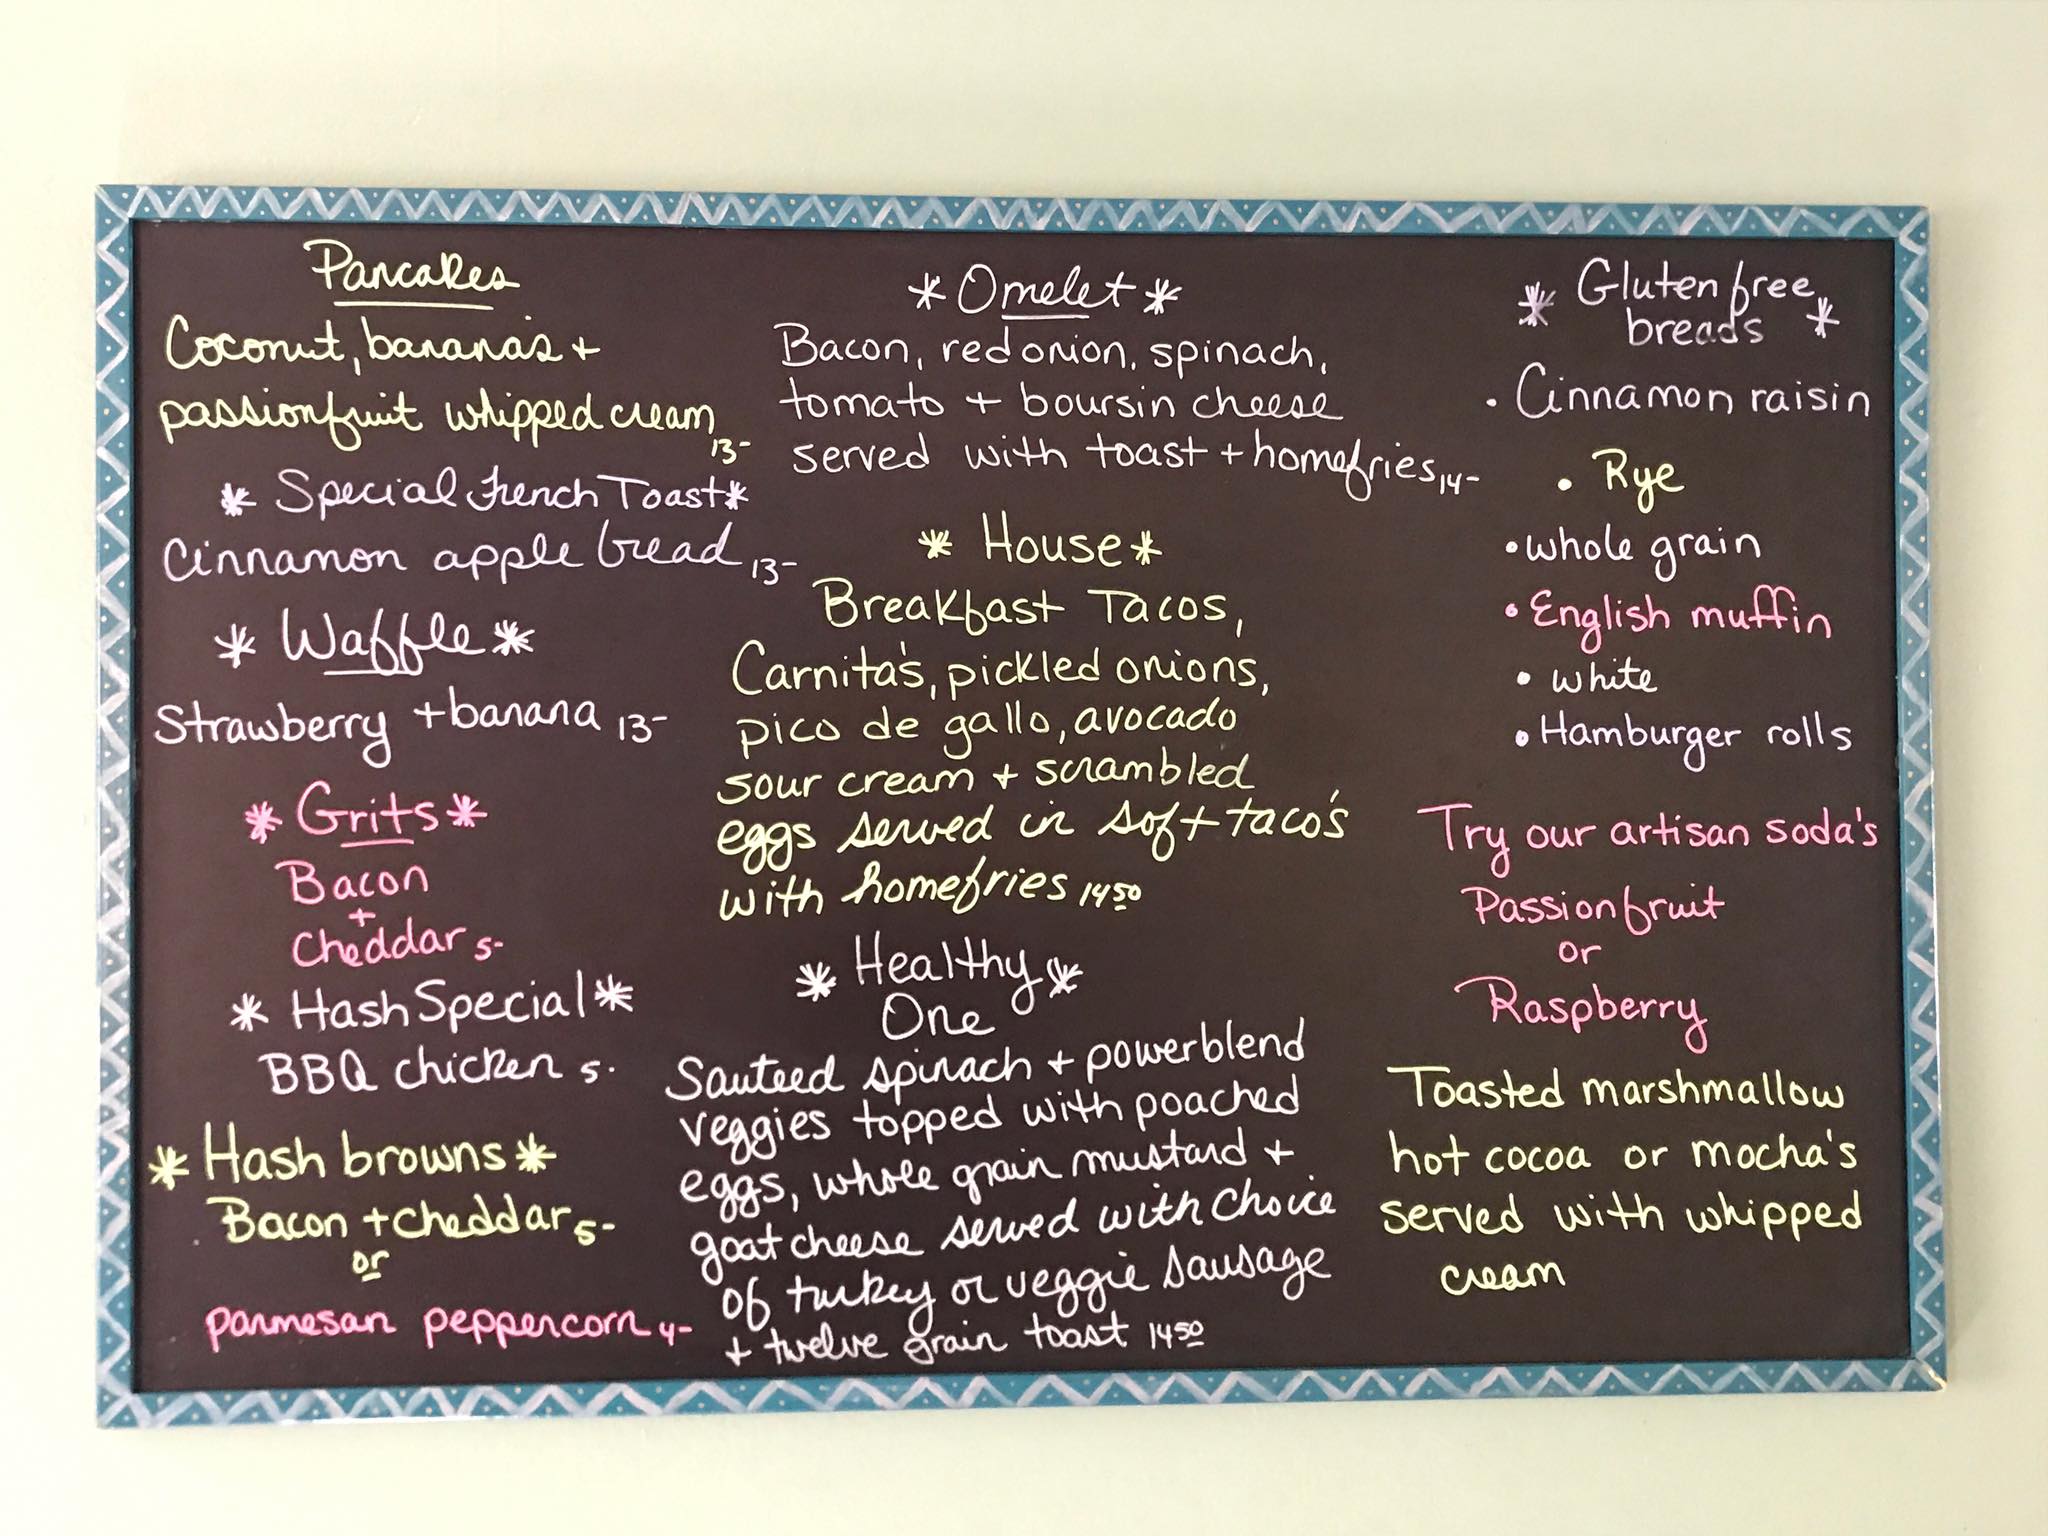 Pancakes
Coconut, banana's +
passionfruit whipped cream
13-
* Special French Toast *
Cinnamon apple bread 13-
* Waffle *
Strawberry + banana 13-
* Grits *
Bacon
+
Cheddar 5-
* Hash Special *
BBQ chicken 5.
* Hash browns *
Bacon + cheddar 5-
or
parmesan peppercorn 4-
* Omelet *
Bacon, red onion, spinach,
tomato + boursin cheese
served with toast + homefries 14-
* House *
Breakfast Tacos,
Carnita's, pickled onions,
pico de gallo, avocado
sour cream + scrambled
eggs served in soft taco's
with homefries 14 50
* Healthy *
One
Sauteed spinach + powerblend
veggies topped with poached
eggs, whole grain mustard +
goat cheese served with choice
of turkey or veggie sausage
+ twelve grain toast 14 50
* Gluten free *
breads
• Cinnamon raisin
• Rye
• whole grain
• English muffin
• white
• Hamburger rolls
Try our artisan soda's
Passionfruit
or
Raspberry
Toasted marshmallow
hot cocoa or mocha's
served with whipped
cream